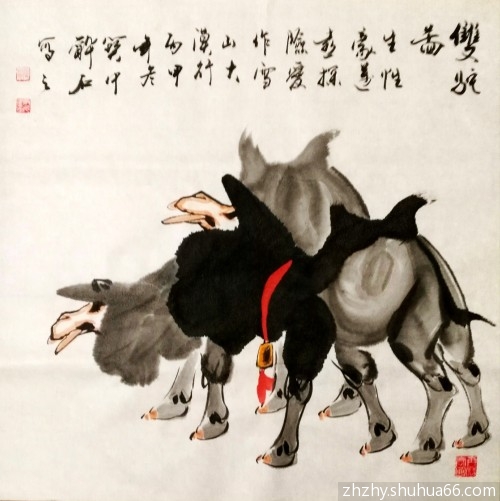 雙駝
圖
生性
豪邁
喜探
險愛
作雪
山大
漠行
丙申
年冬
醉石
寫之
zhzhy.shuhua66.com